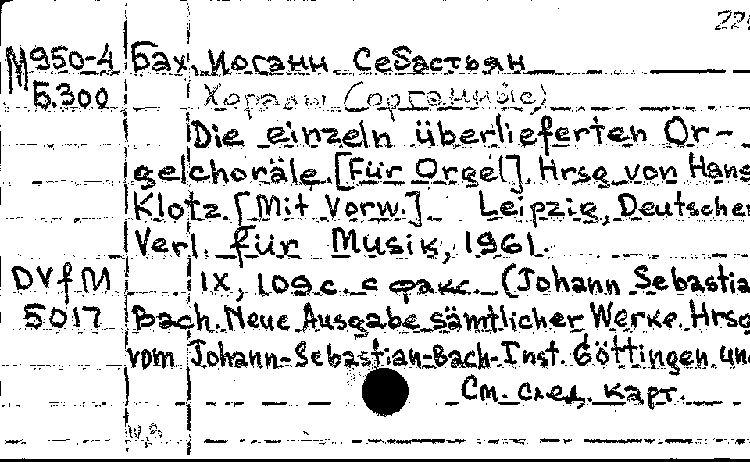 М950-4 Бах, Иоганн Себастьян
Б.300 Хоралы (органные)
Die einzeln überlieferten Or-
gelchoräle. [Für Orgel]. Hrsg. von Hans
Klotz. [Mit Vorw.] Leipzig, Deutscher
Verl. für Musik, 1961.
DVfM IX, 109 с. с факс. (Johann Sebastia
5017 Bach. Neue Ausgabe sämtlicher Werke. Hrsg
vom Johann-Sebastian-Bach-Inst. Göttingen un
См. след. карт.